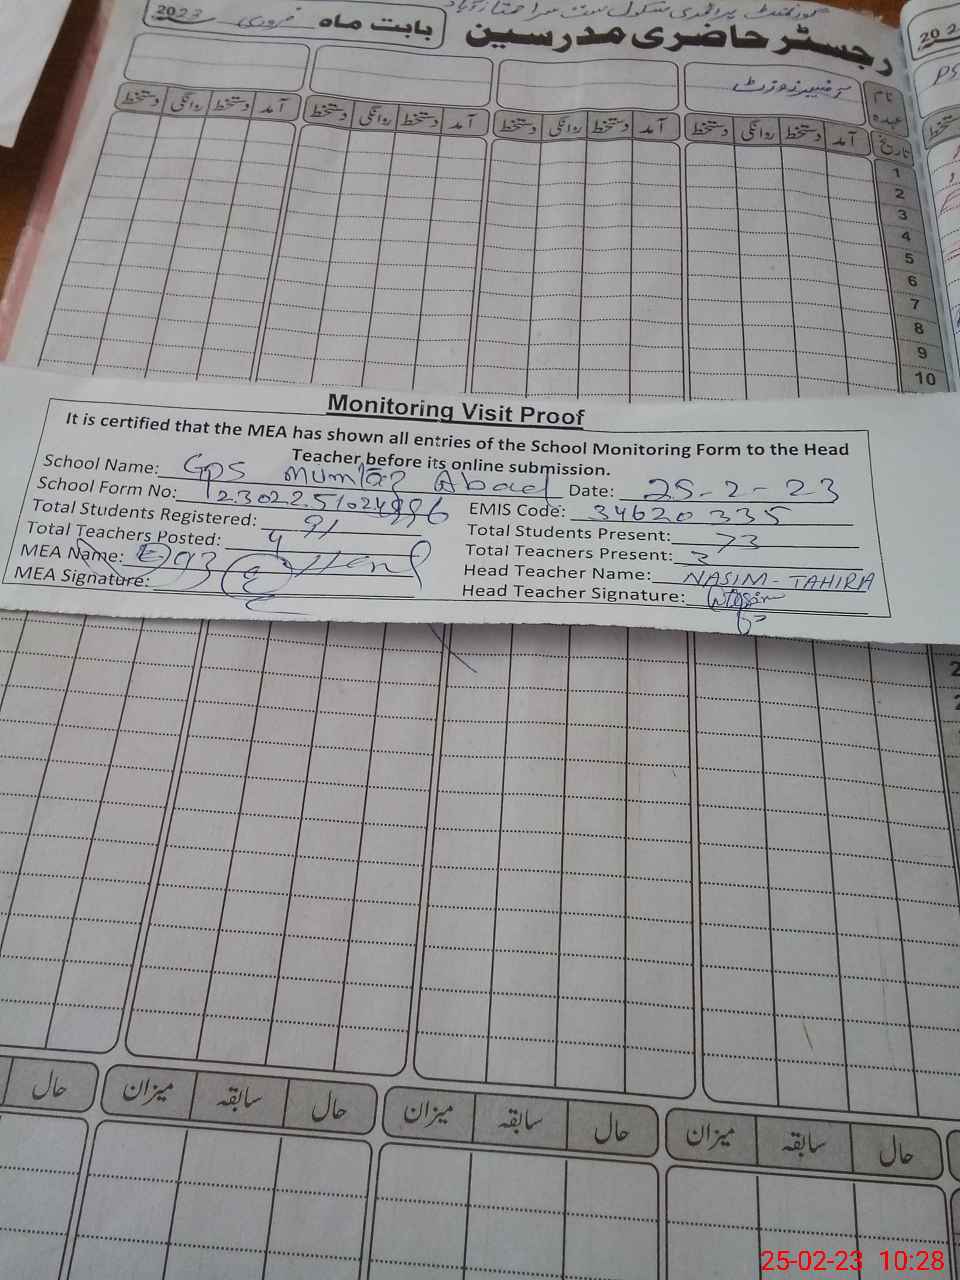 رجسٹر حاضری مدرسین
بابت ماہ فروری 2023
نام
عہدہ
تاریخ آمد دستخط روانگی دستخط آمد دستخط روانگی دستخط آمد دستخط روانگی دستخط آمد دستخط روانگی دستخط
1
2
3
4
5
6
7
8
9
10
Monitoring Visit Proof
It is certified that the MEA has shown all entries of the School Monitoring Form to the Head
Teacher before its online submission.
School Name: GPS Mumtaz Abad Date: 25-2-23
School Form No: EMIS Code: 34620335
Total Students Registered: 91 Total Students Present: 73
Total Teachers Posted: 4 Total Teachers Present: 3
MEA Name: Head Teacher Name: NASIM-TAHIRA
MEA Signature: Head Teacher Signature:
حال سابقہ میزان حال سابقہ میزان حال سابقہ میزان حال
25-02-23 10:28